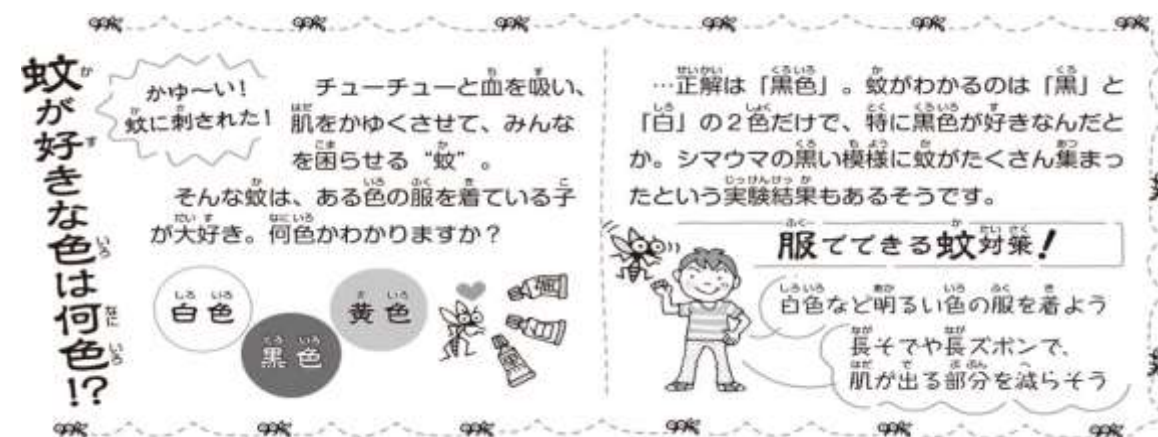 蚊が好きな色は何色!?
かゆ〜い!
蚊に刺された!
チューチューと血を吸い、
肌をかゆくさせて、みんな
を困らせる“蚊”。
そんな蚊は、ある色の服を着ている子
が大好き。何色かわかりますか?
白色
黒色
黄色
…正解は「黒色」。蚊がわかるのは「黒」と
「白」の2色だけで、特に黒色が好きなんだと
か。シマウマの黒い模様に蚊がたくさん集まっ
たという実験結果もあるそうです。
服でできる蚊対策!
白色など明るい色の服を着よう
長そでや長ズボンで、
肌が出る部分を減らそう